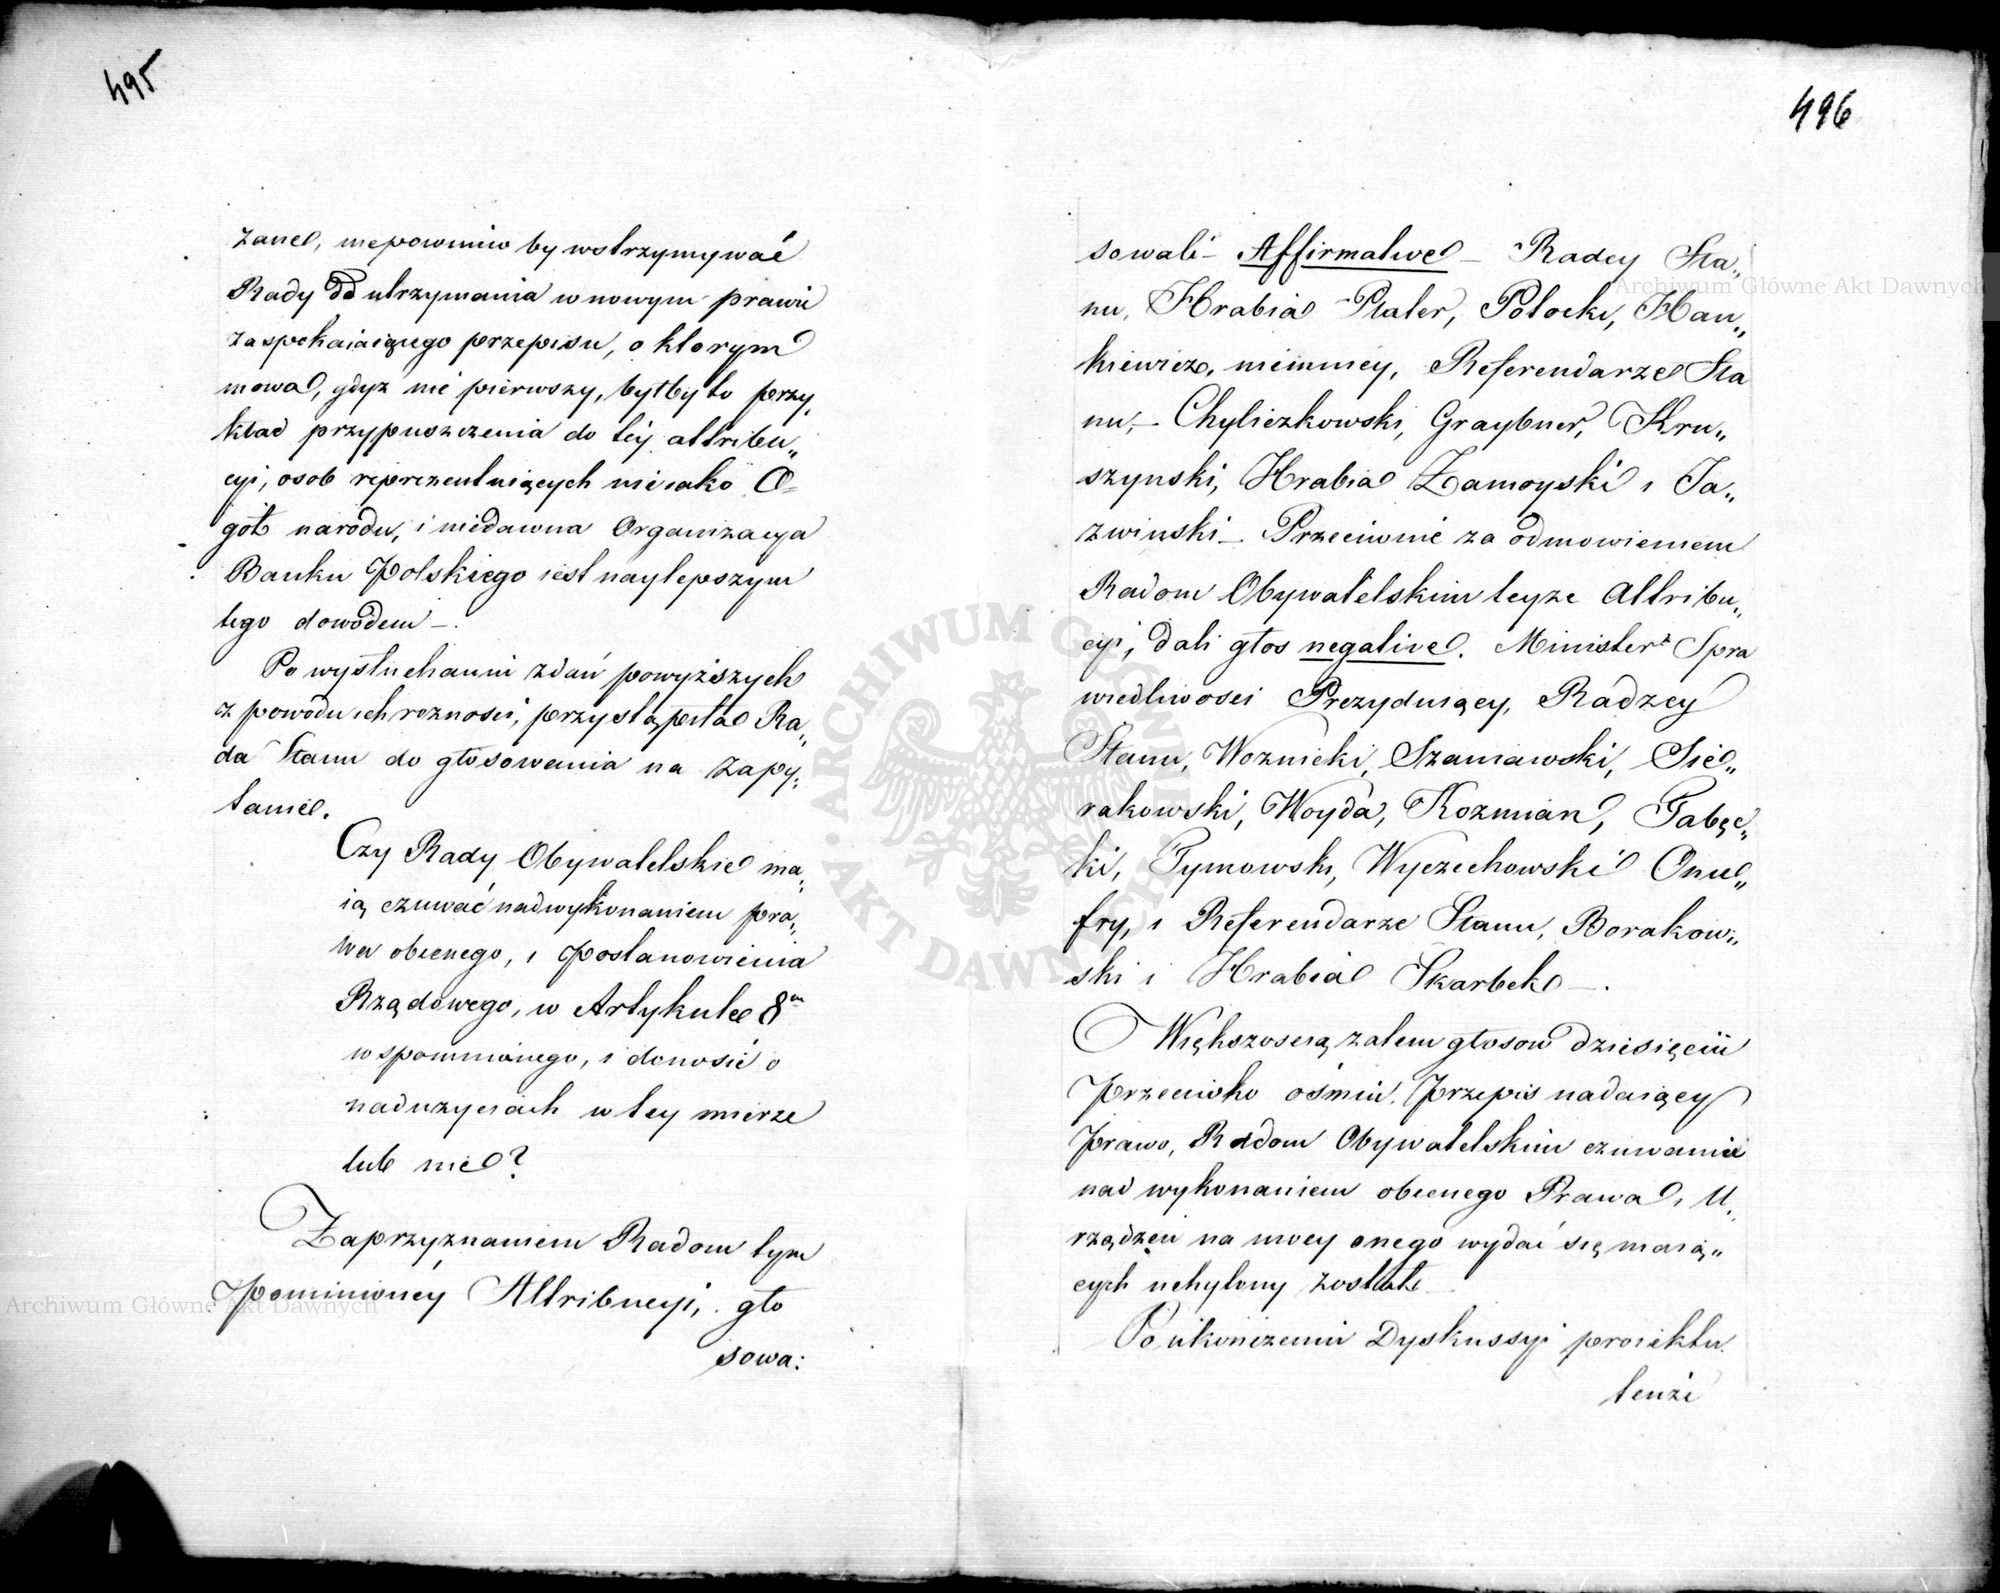 495
zane, niepowinno by wstrzymywać
Rady od utrzymania w nowym prawie
zaspokaiaiącego przepisu, o ktorym
mowa, gdyż nie pierwszy, byłby to przy„
kład przypuszczenia do téy attribu„
cyi, osob reprezentuiących nieiako O„
gół narodu, i niedawna Organizacya
Banku Polskiego iest naylepszym
tego dowodem —.
Po wysłuchaniu zdań powyższych
z powodu ich rozności, przystąpiła Ra„
da Stanu do głosowania na zapy„
tanie.
Czy Rady Obywatelskie ma„
ią czuwać nad wykonaniem pra„
wa obecnego, i Postanowienia
Rządowego, w Artykule 8m
wspomnionego, i donosić o
nadużyciach w tey mierze
lub nie?
Za przyznaniem Radom tym
Pominioney Attribucyi, gło
sowa:
496
sowali — Affirmative — Radcy Sta„
nu, Hrabia Plater, Potocki, Han„
kiewicz, niemniey, Referendarze Sta
nu, — Chyliczkowski, Graybner, Kru„
szynski, Hrabia Zamoyski i Ja„
zwinski — Przeciwnie za odmowieniem
Radom Obywatelskim teyże Attribu„
cyi, dali głos negative. Minister Spra
wiedliwosci Prezyduiący, Radzcy
Stanu, Woznicki, Szaniawski, Sie„
rakowski, Woyda, Kozmian, Tabęc„
ki, Tymowski, Wyczechowski Onu„
fry, i Referendarze Stanu, Borakow„
ski i Hrabia Skarbek —.
Większoscią zatem głosow dziesięciu
Przeciwko ośmiu. Przepis nadaiący
Prawo, Radom Obywatelskim czuwania
nad wykonaniem obecnego Prawa, i U„
rządzeń na mocy onego wydać się maią„
cych uchylony został —
Po ukończeniu Dyskussyi proiektu
tenże
Archiwum Główne Akt Dawnych
Archiwum Główne Akt Dawnych
ARCHIWUM GŁÓWNE AKT DAWNYCH